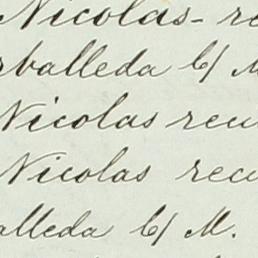 Nicolas - re
rballeda C/ M
Nicolas recu
Nicolas recu
alleda C/ M.